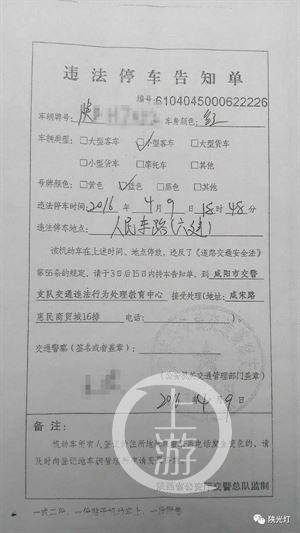 违法停车告知单
编号:6104045000622226
车辆牌号: 陕 车身颜色: 红
车辆类型: □大型客车 □小型客车 □大型货车
□小型货车 □摩托车 □其他
号牌颜色: □黄色 □蓝色 □黑色 □其他
违法停车时间: 2016 年 4 月 9 日 18 时 48 分
违法停车地点: 人民东路(六建)
该机动车在上述时间、地点停放,违反了《道路交通安全法》
第56条的规定,请于3日后15日内持本告知单,到 咸阳市交警
支队交通违法行为处理教育中心 接受处理(地址: 咸宋路
惠民商贸城16排 电话: )
交通警察(签名或者盖章):
交通管理部门盖章)
2016 年 4 月 9 日
备注:
机动车所有人登记的住所地 电话发生变化的,请
及时向登记地车辆管理所申请变更
陕西省公安厅交警总队监制
一式二份,一份
陕光灯